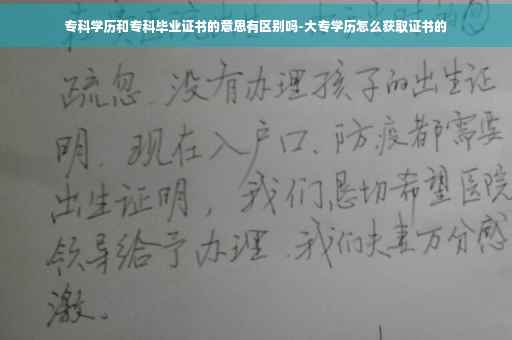 专科学历和专科毕业证书的意思有区别吗-大专学历怎么获取证书的
疏忽、没有办理孩子的出生证
明、现在入户口、防疫都需要
出生证明,我们恳切希望医院
领导给予办理、我们夫妻万分感
激。